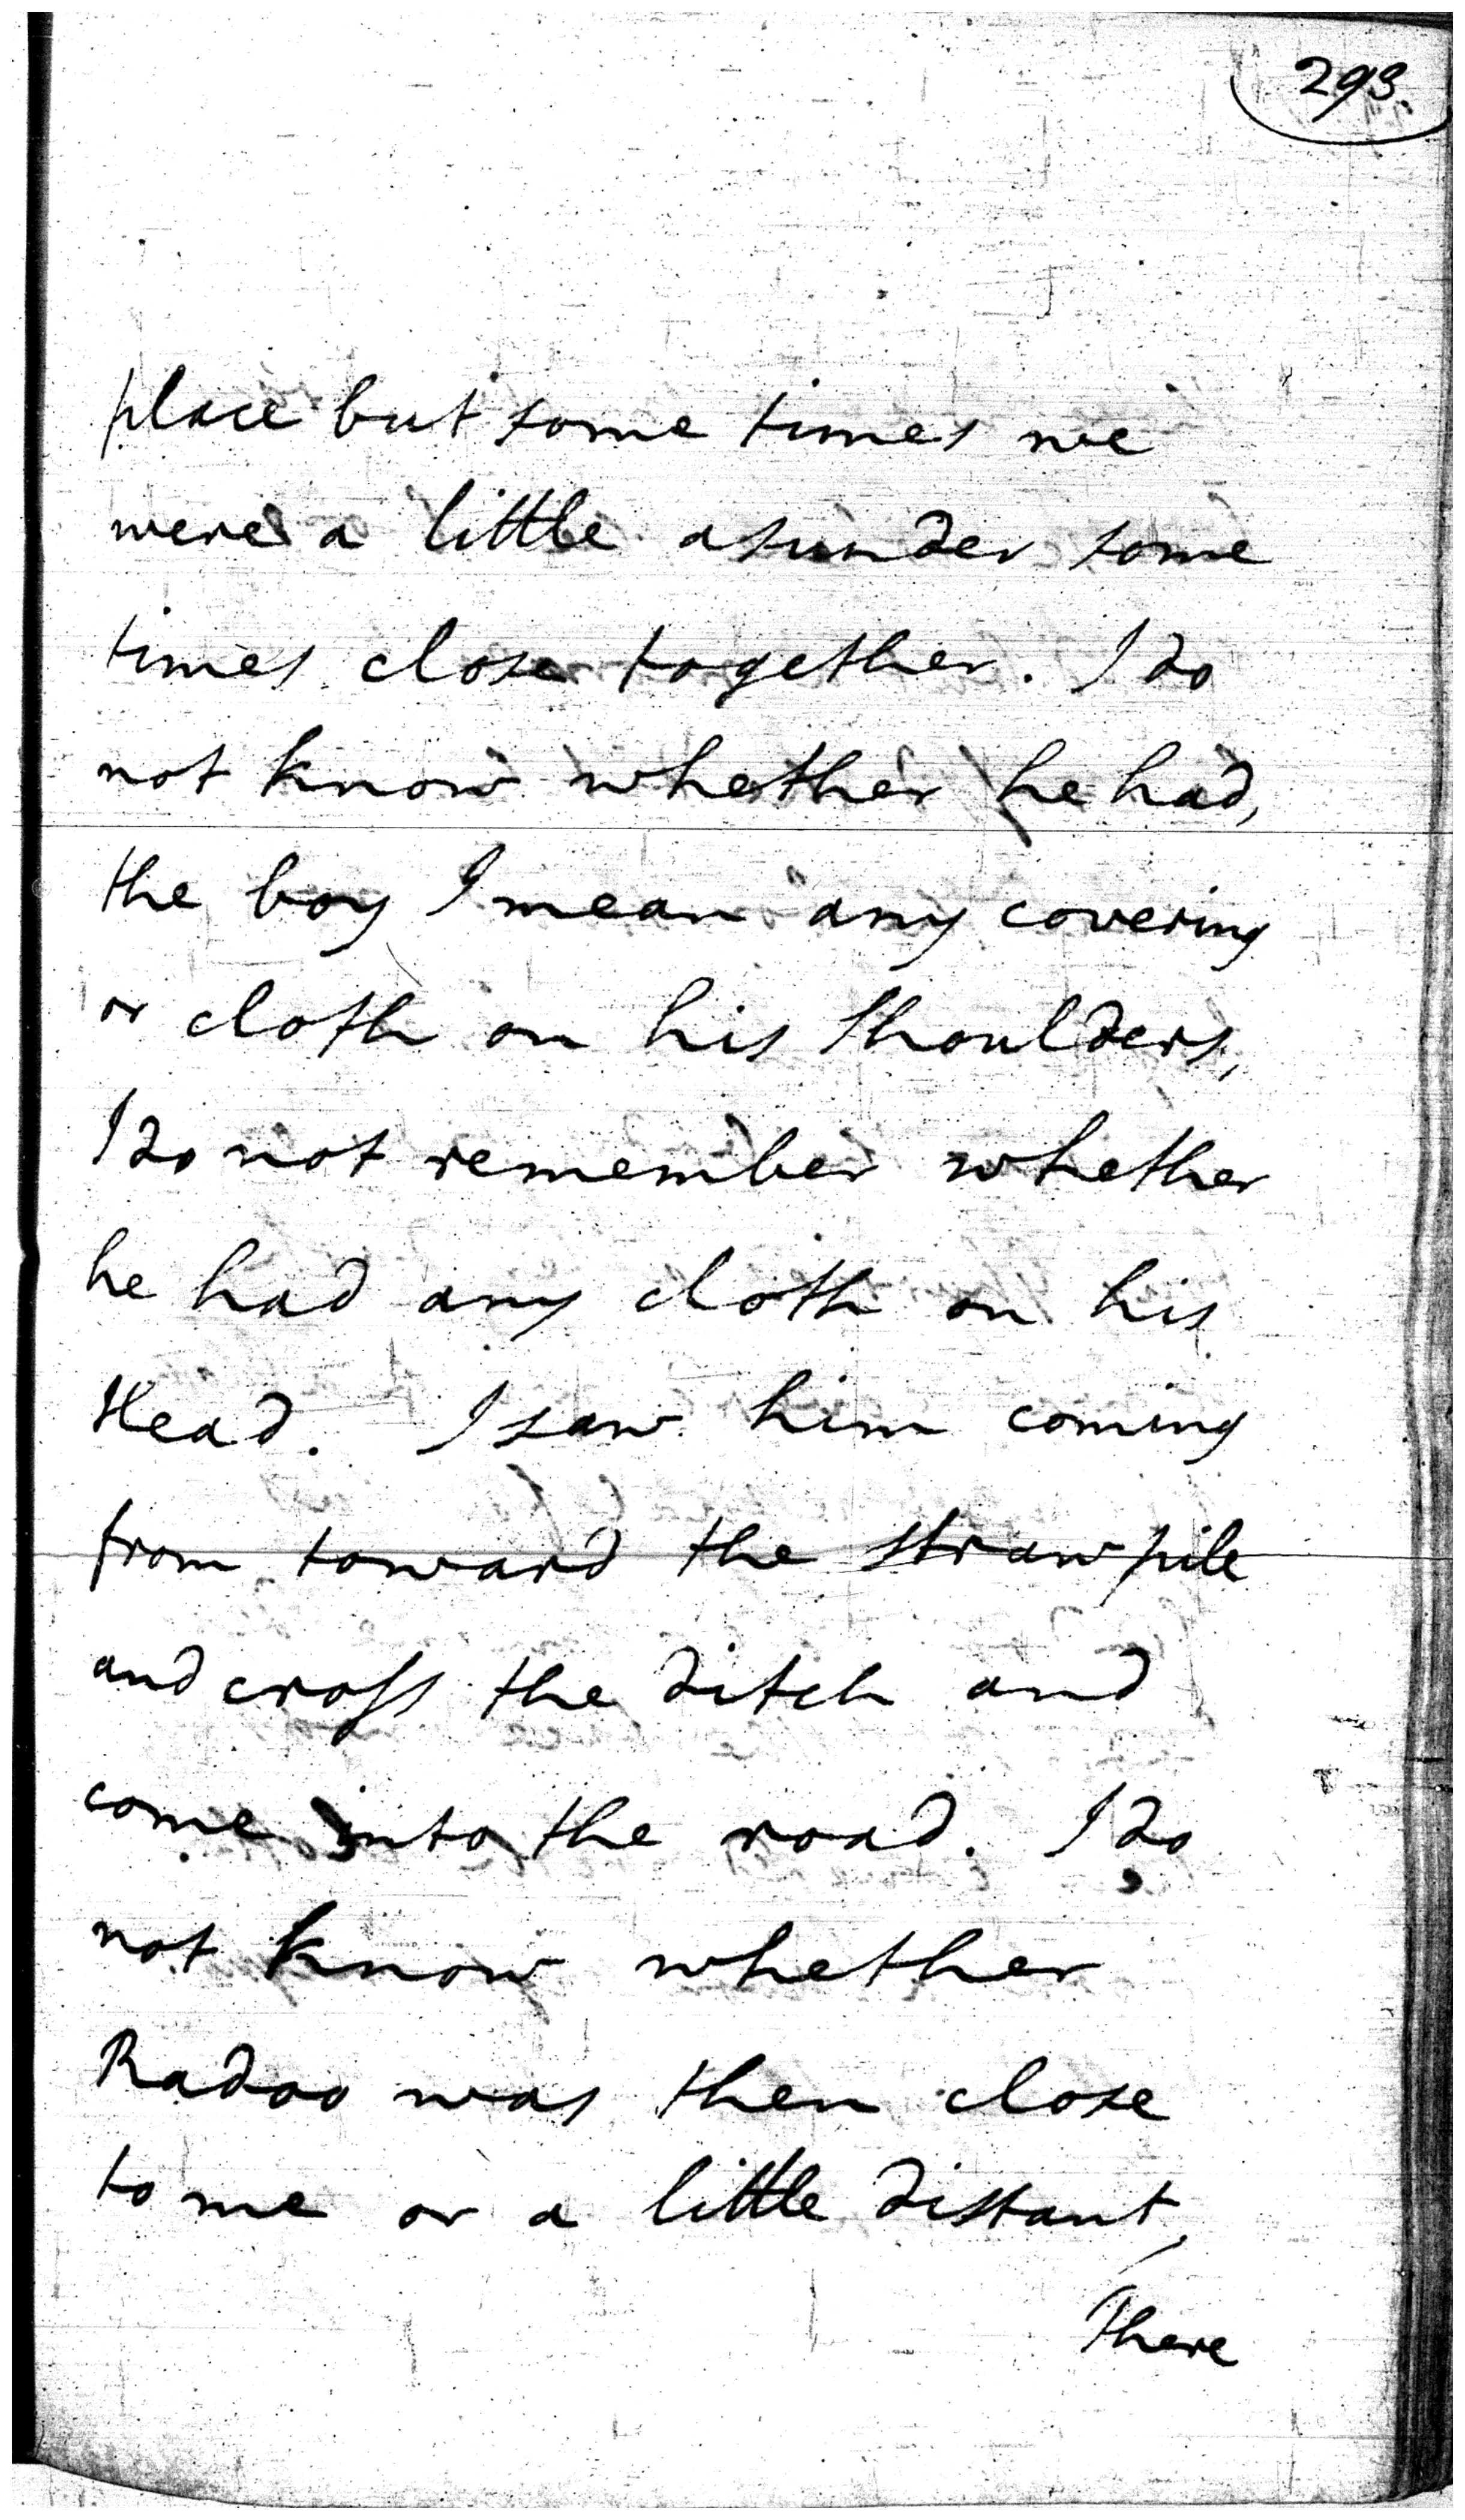 293.
place but some times we
were a little asunder some
times close together. I do
not know whether he had,
the boy I mean any covering
or cloth on his shoulders,
I do not remember whether
he had any cloth on his
Head. I saw him coming
from toward the strawpile
and cross the ditch and
come into the road. I do
not know whether
Radoo was then close
to me or a little distant,
There